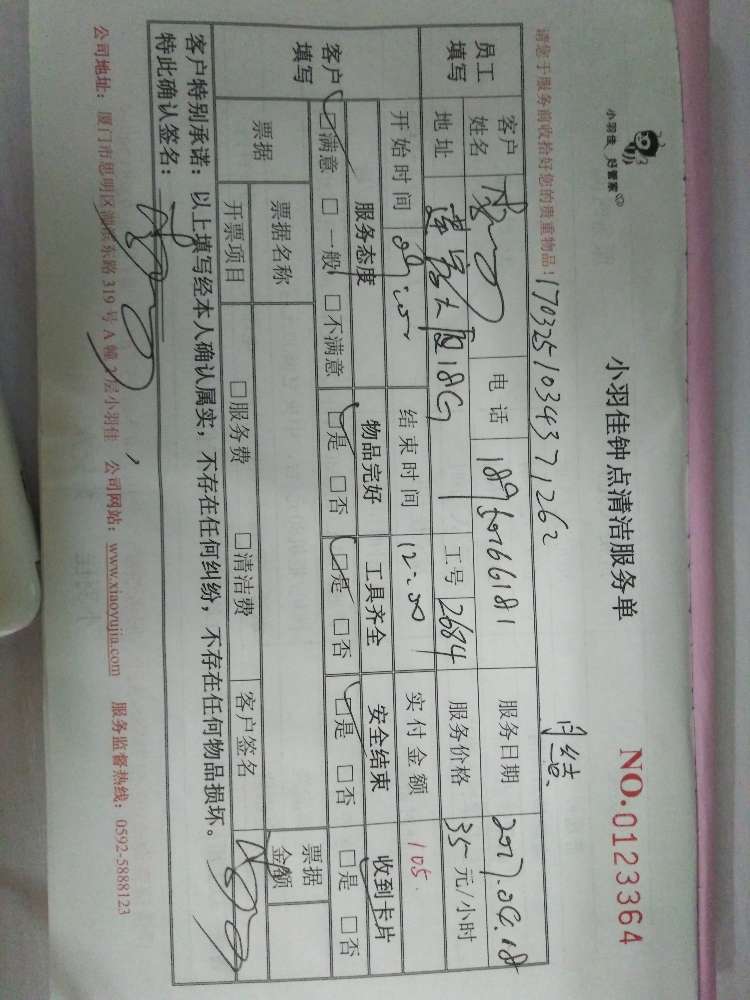 小羽佳 好管家
小羽佳钟点清洁服务单
NO.0123364
请您于服务前收拾好您的贵重物品!
1703251034371262
月结
员工填写
客户姓名 电话 18950166181 服务日期 2017.04.18
地址 大厦18G 工号 2684 服务价格 35元/小时
开始时间 09:00 结束时间 12:00 实付金额 105.
客户填写
服务态度 物品完好 工具齐全 安全结束 收到卡片
☑满意 □一般 □不满意 ☑是 □否 ☑是 □否 ☑是 □否 ☑是 □否
票据 票据名称 票据金额
开票项目 □服务费 □清洁费 客户签名
客户特别承诺:以上填写经本人确认属实,不存在任何纠纷,不存在任何物品损坏。
特此确认签名:
公司地址:厦门市思明区湖滨东路319号A幢2层小羽佳 公司网站:www.xiaoyujia.com 服务监督热线:0592-5888123